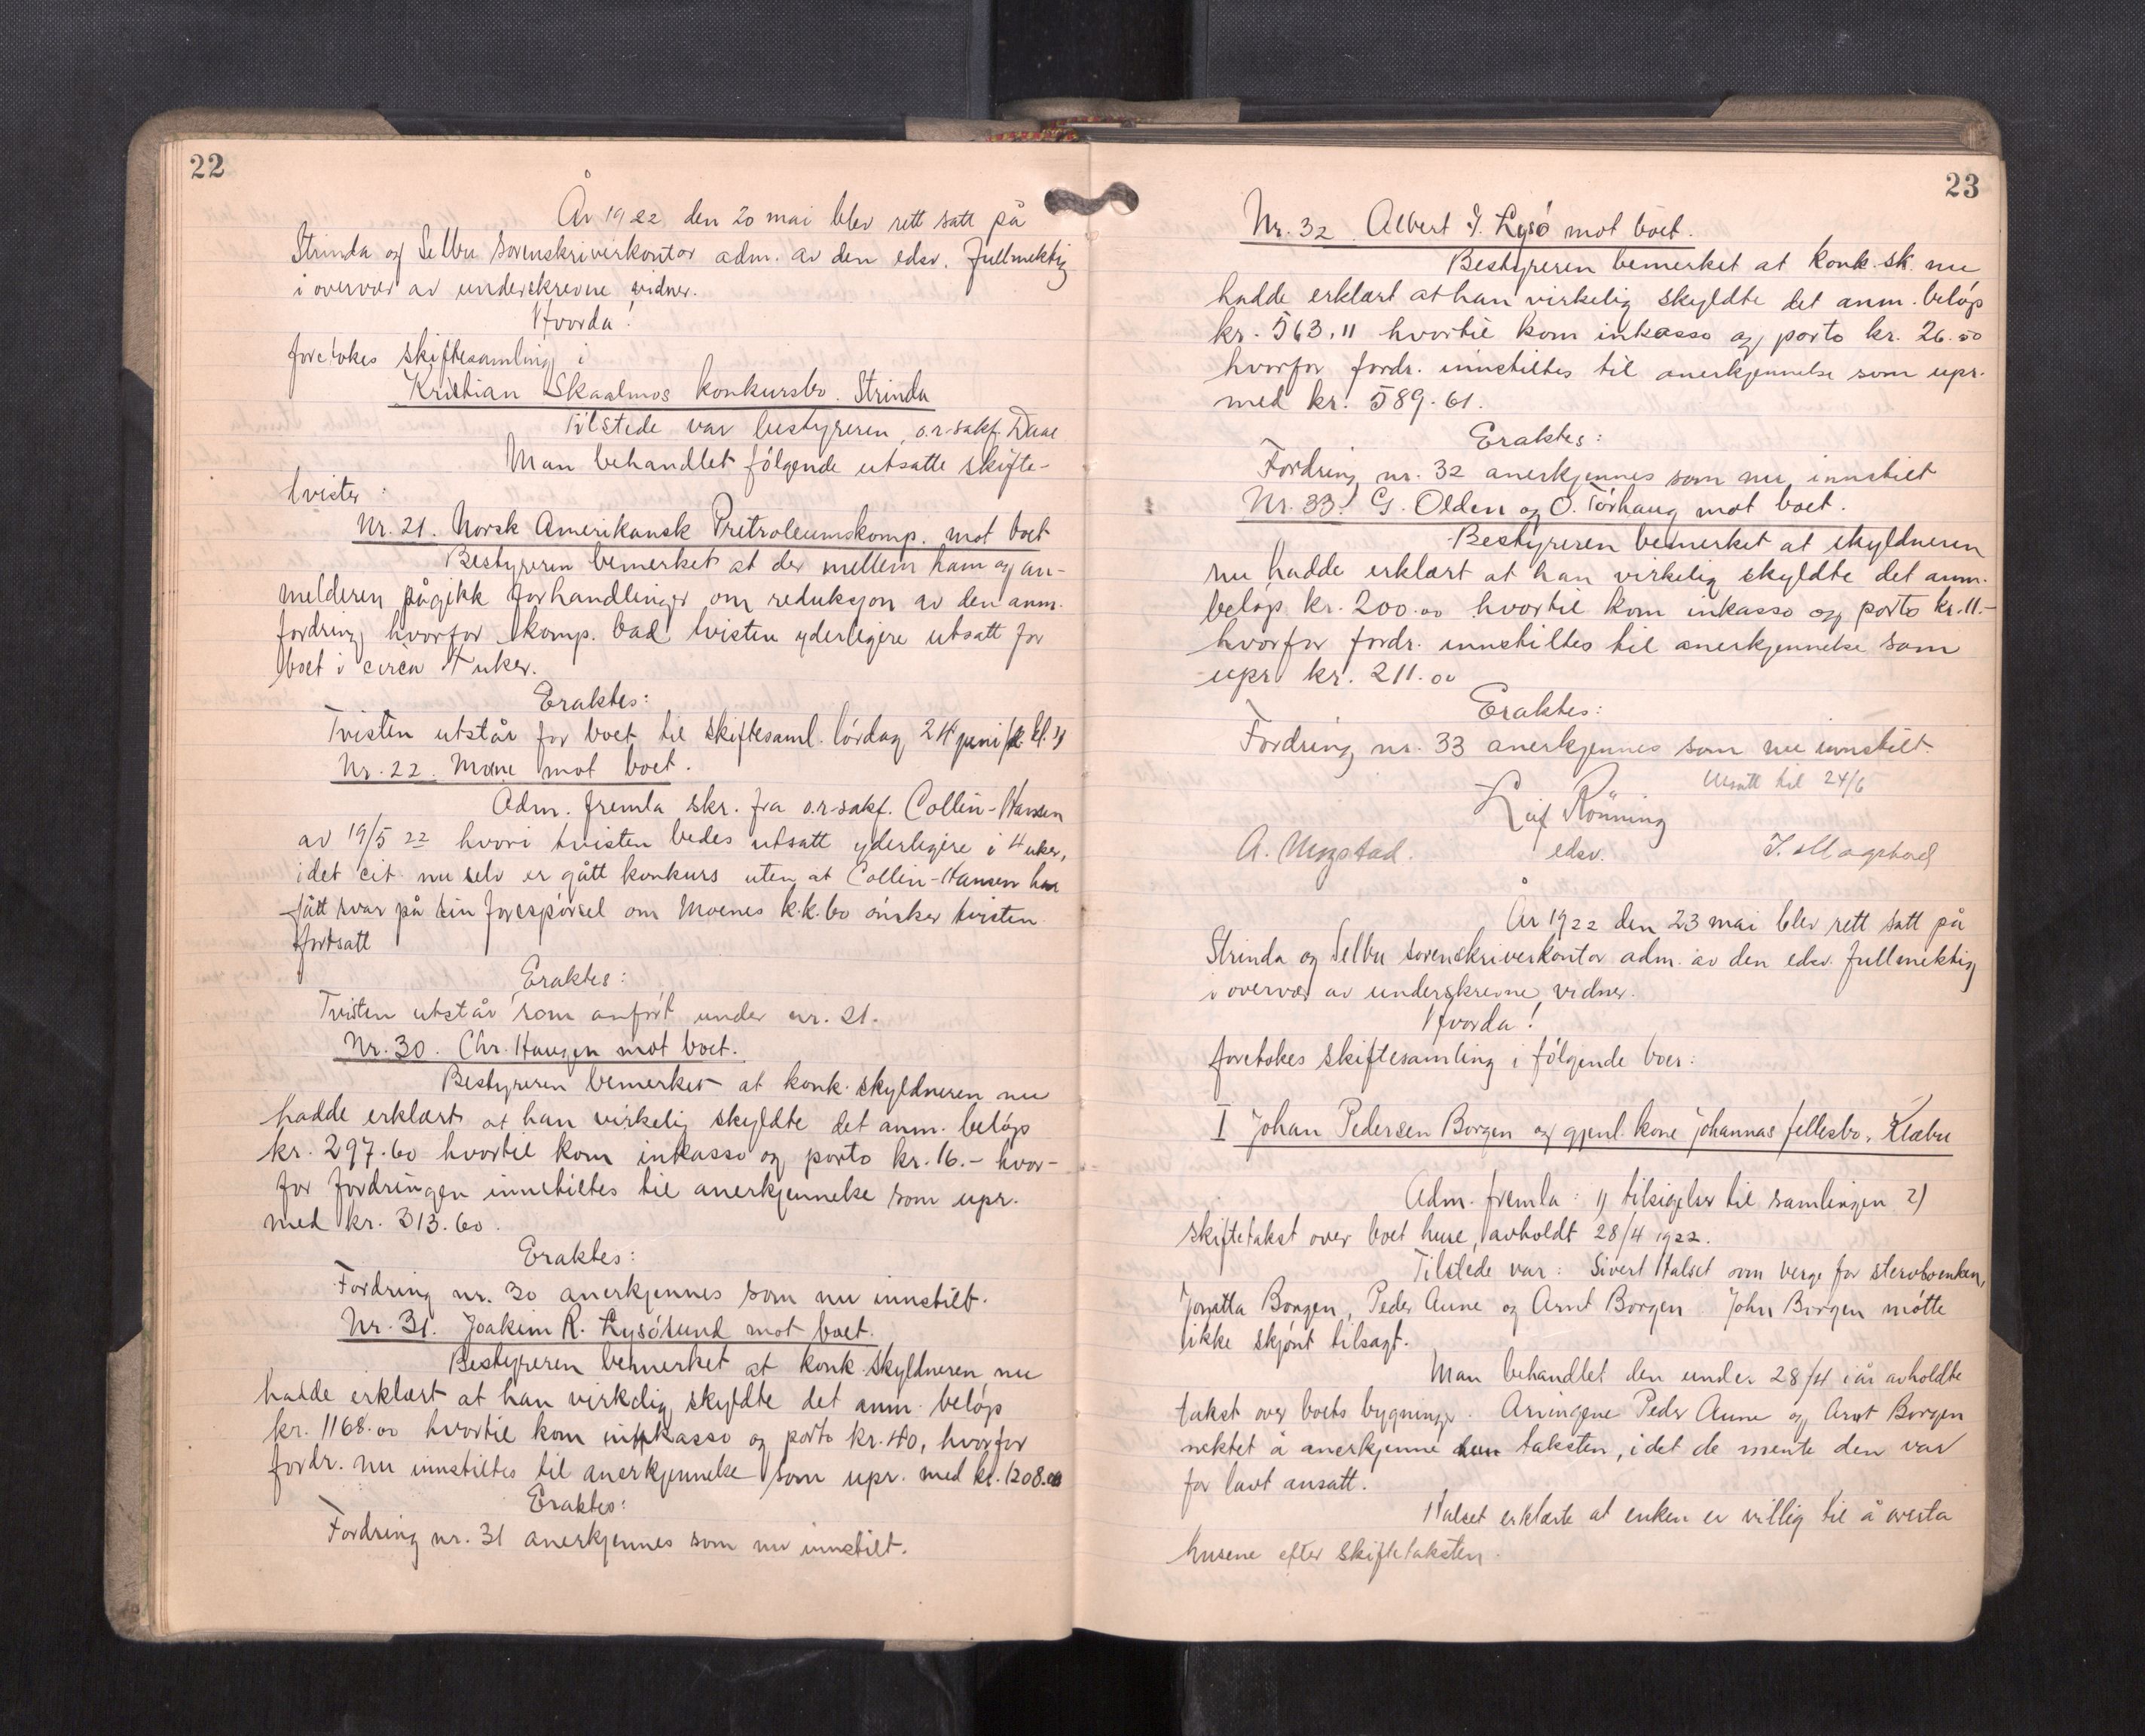 22
År 1922 den 20 mai blev rett satt på
Strinda og Selbu sorenskriverkontor adm. av den edsv. fullmektig
i overvær av underskrevne vidner.
Hvorda!
foretokes skiftesamling i
Kristian Skaalmos konkursbo. Strinda
Tilstede var bestyreren, o.r.sakf. Daae
Man behandlet følgende utsatte skifte-
tvister:
Nr. 21. Norsk Amerikansk Pretroleumskomp. mot boet
Bestyreren bemerket at der mellem ham og an-
melderen pågikk forhandlinger om reduksjon av den anm.
fordring hvorfor komp. bad tvisten yderligere utsatt for
boet i circa 4 uker.
Eraktes:
Tvisten utstår for boet til skiftesaml. lørdag 24 juni kl.
Nr. 22. Moene mot boet.
Adm. fremla skr. fra o.r-sakf. Collin-Hansen
av 19/5 22 hvori tvisten bedes utsatt yderligere i 4 uker,
idet cit. nu selv er gått konkurs uten at Collin-Hansen har
fått svar på sin forespørsel om Moenes k.k.bo ønsker tvisten
fortsatt
Eraktes:
Tvisten utstår som anført under nr. 21.
Nr. 30. Chr. Haugen mot boet.
Bestyreren bemerket at konk. skyldneren nu
hadde erklært at han virkelig skyldte det anm. beløp
kr. 297.60 hvortil kom inkasso og porto kr. 16.- hvor-
for fordringen innstiltes til anerkjennelse som upr.
med kr. 313.60.
Eraktes:
Fordring nr. 30 anerkjennes som nu innstilt.
Nr. 31. Joakim R. Lysøsund mot boet.
Bestyreren bemerket at konk. skyldneren nu
hadde erklært at han virkelig skyldte det anm. beløp
kr. 1168.00 hvortil kom inkasso og porto kr. 40, hvorfor
fordr. nu innstiltes til anerkjennelse som upr. med kr. 1208.00
Eraktes:
Fordring nr. 31 anerkjennes som nu innstilt.
23
Nr. 32. Albert I. Lysø mot boet.
Bestyreren bemerket at konk. sk. nu
hadde erklært at han virkelig skyldte det anm. beløp
kr. 563.11 hvortil kom inkasso og porto kr. 26.50
hvorfor fordr. innstiltes til anerkjennelse som upr.
med kr. 589.61.
Eraktes:
Fordring nr. 32 anerkjennes som nu innstilt
Nr. 33. G. Olden og O. Tørhaug mot boet.
Bestyreren bemerket at skyldneren
nu hadde erklært at han virkelig skyldte det anm.
beløp kr. 200.00 hvortil kom inkasso og porto kr. 11.-
hvorfor fordr. innstiltes til anerkjennelse som
upr. kr. 211.00
Eraktes:
Fordring nr. 33 anerkjennes som nu innstilt.
Utsatt til 24/6
Leif Rönning
A. Mogstad. edsv. I. Mogstad
År 1922 den 23 mai blev rett satt på
Strinda og Selbu sorenskriverkontor adm. av den edsv. fullmektig
i overvær av underskrevne vidner.
Hvorda!
foretokes skiftesamling i følgende boer:
I Johan Pedersen Borgen og gjenl. kone Johannas fellesbo, Klæbu
Adm. fremla: 1) tilsigelser til samlingen 2)
skiftetakst over boet huse, avholdt 28/4 1922.
Tilstede var: Sivert Halset som verge for stervboenken,
Borgen, Peder Aune og Arnt Borgen. John Borgen møtte
ikke skjønt tilsagt.
Man behandlet den under 28/4 i år avholdte
takst over boets bygninger. Arvingene Peder Aune og Arnt Borgen
nektet å anerkjenne taksten, idet de mente den var
for lavt ansatt.
Halset erklærte at enken er villig til å overta
husene efter skiftetaksten.